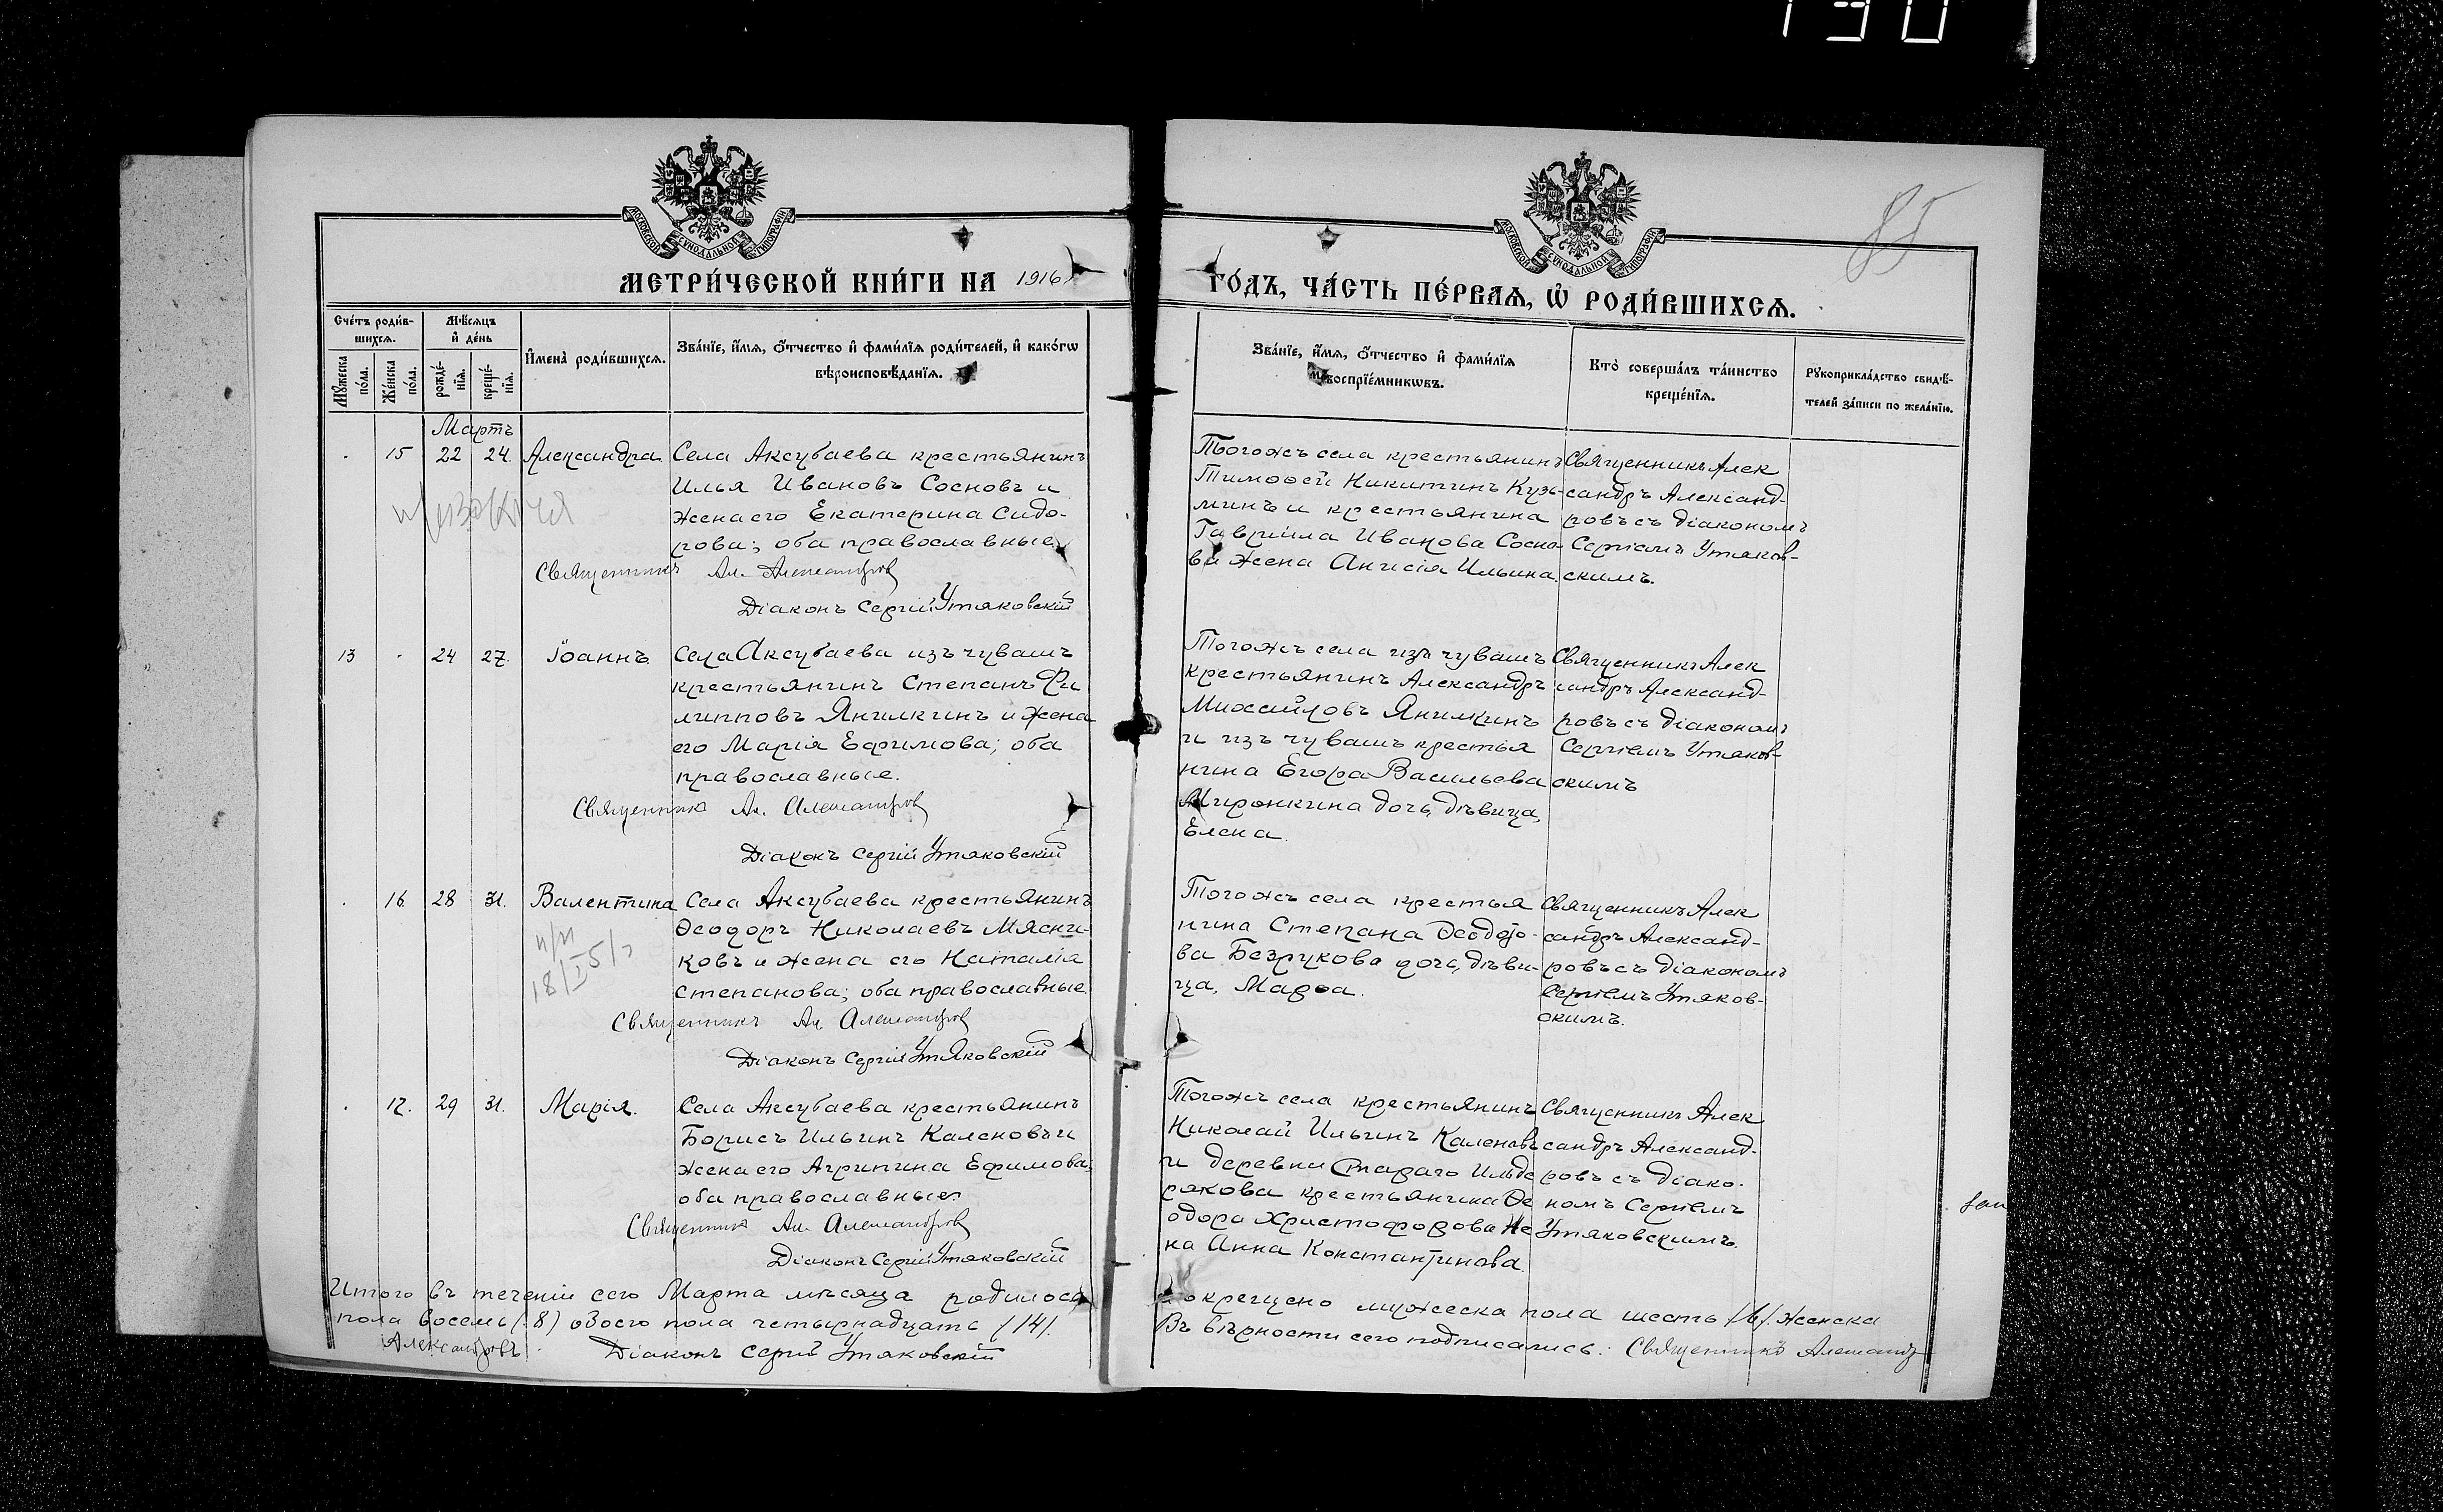 130
85
МОСКОВСКОЙ СѴНОДАЛЬНОЙ ТИПОГРАФІИ
МОСКОВСКОЙ СѴНОДАЛЬНОЙ ТИПОГРАФІИ
МЕТРИ́ЧЕСКОЙ КНИ́ГИ НА 1916
ГО́ДЪ, ЧА́СТЬ ПЕ́РВАѦ, Ѡ҆ РОДИ́ВШИХСѦ.
Сче́тъ роди́в-
шихсѧ.
Мꙋ́жеска
по́ла.
Же́нска
по́ла.
Мѣ́сѧцъ
и҆ де́нь
рожде́-
нїѧ.
креще́-
нїѧ.
И҆мена̀ роди́вшихсѧ.
Зва́нїе, и҆́мѧ, ѻ҆́тчество и҆ фами́лїѧ роди́телей, и҆ како́гѡ
вѣроисповѣ́данїѧ.
Зва́нїе, и҆́мѧ, ѻ҆́тчество и҆ фами́лїѧ
воспрїе́мникѡвъ.
Кто̀ соверша́лъ та́инство
креще́нїѧ.
Рꙋкоприкла́дство свидѣ́-
телей за́писи по жела́нїю.
Мартъ
15 22 24. Александра. Села Аксубаева крестьянинъ
Илья Ивановъ Сосновъ и
жена его Екатерина Сидо-
рова; оба православные
Священникъ Ал. Александров
Діаконъ Сергій Утяковскій
Тогожъ села крестьянинъ
Тимоѳей Никитинъ Кузь-
минъ и крестьянина
Гавріила Иванова Сосно-
ва жена Анисія Ильина.
Священникъ Алек
сандръ Александ-
ровъ съ діакономъ
Сергіемъ Утяков-
скимъ.
13 24 27. Іоаннъ. Села Аксубаева изъ чувашъ
крестьянинъ Степанъ Фи
липповъ Янилкинъ и жена
его Марія Ефимова; оба
православные.
Священник Ал. Александров
Діаконъ Сергій Утяковскій
Тогожъ села изъ чувашъ
крестьянинъ Александръ
Михайловъ Янилкинъ
и изъ чувашъ крестья
нина Егора Васильева
Миронкина дочь, дѣвица,
Елена.
Священникъ Алек
сандръ Александ-
ровъ съ діакономъ
Сергіемъ Утяков-
скимъ
16. 28 31. Валентина Села Аксубаева крестьянинъ
Ѳеодоръ Николаевъ Мясни-
ковъ и жена его Наталія
Степанова; оба православные.
Священникъ Ал. Александров
Діаконъ Сергій Утяковскій
Тогожъ села крестья
нина Степана Ѳеодоро-
ва Безрукова дочь, дѣви-
ца, Марѳа.
Священникъ Алек
сандръ Александ-
ровъ съ діакономъ
Сергіемъ Утяков-
скимъ.
17. 29 31. Марія. Села Аксубаева крестьянинъ
Борисъ Ильинъ Каленовъ и
жена его Агрипина Ефимова;
оба православные.
Священник Ал. Александров
Діаконъ Сергій Утяковскій
Тогожъ села крестьянинъ
Николай Ильинъ Каленовъ
и деревни Стараго Ильде
рякова крестьянина Ѳе
одора Христофорова же
на Анна Константинова.
Священникъ Алек
сандръ Александ-
ровъ съ діако-
номъ Сергіемъ
Утяковскимъ.
Итого въ теченіи сего Марта мѣсяца родилось и окрещено мужеска пола шесть /6/. женска
пола восемь (8) обоего пола четырнадцать /14/. Въ вѣрности сего подписались: Священникъ Александр
Александровъ. Діаконъ Сергій Утяковскій